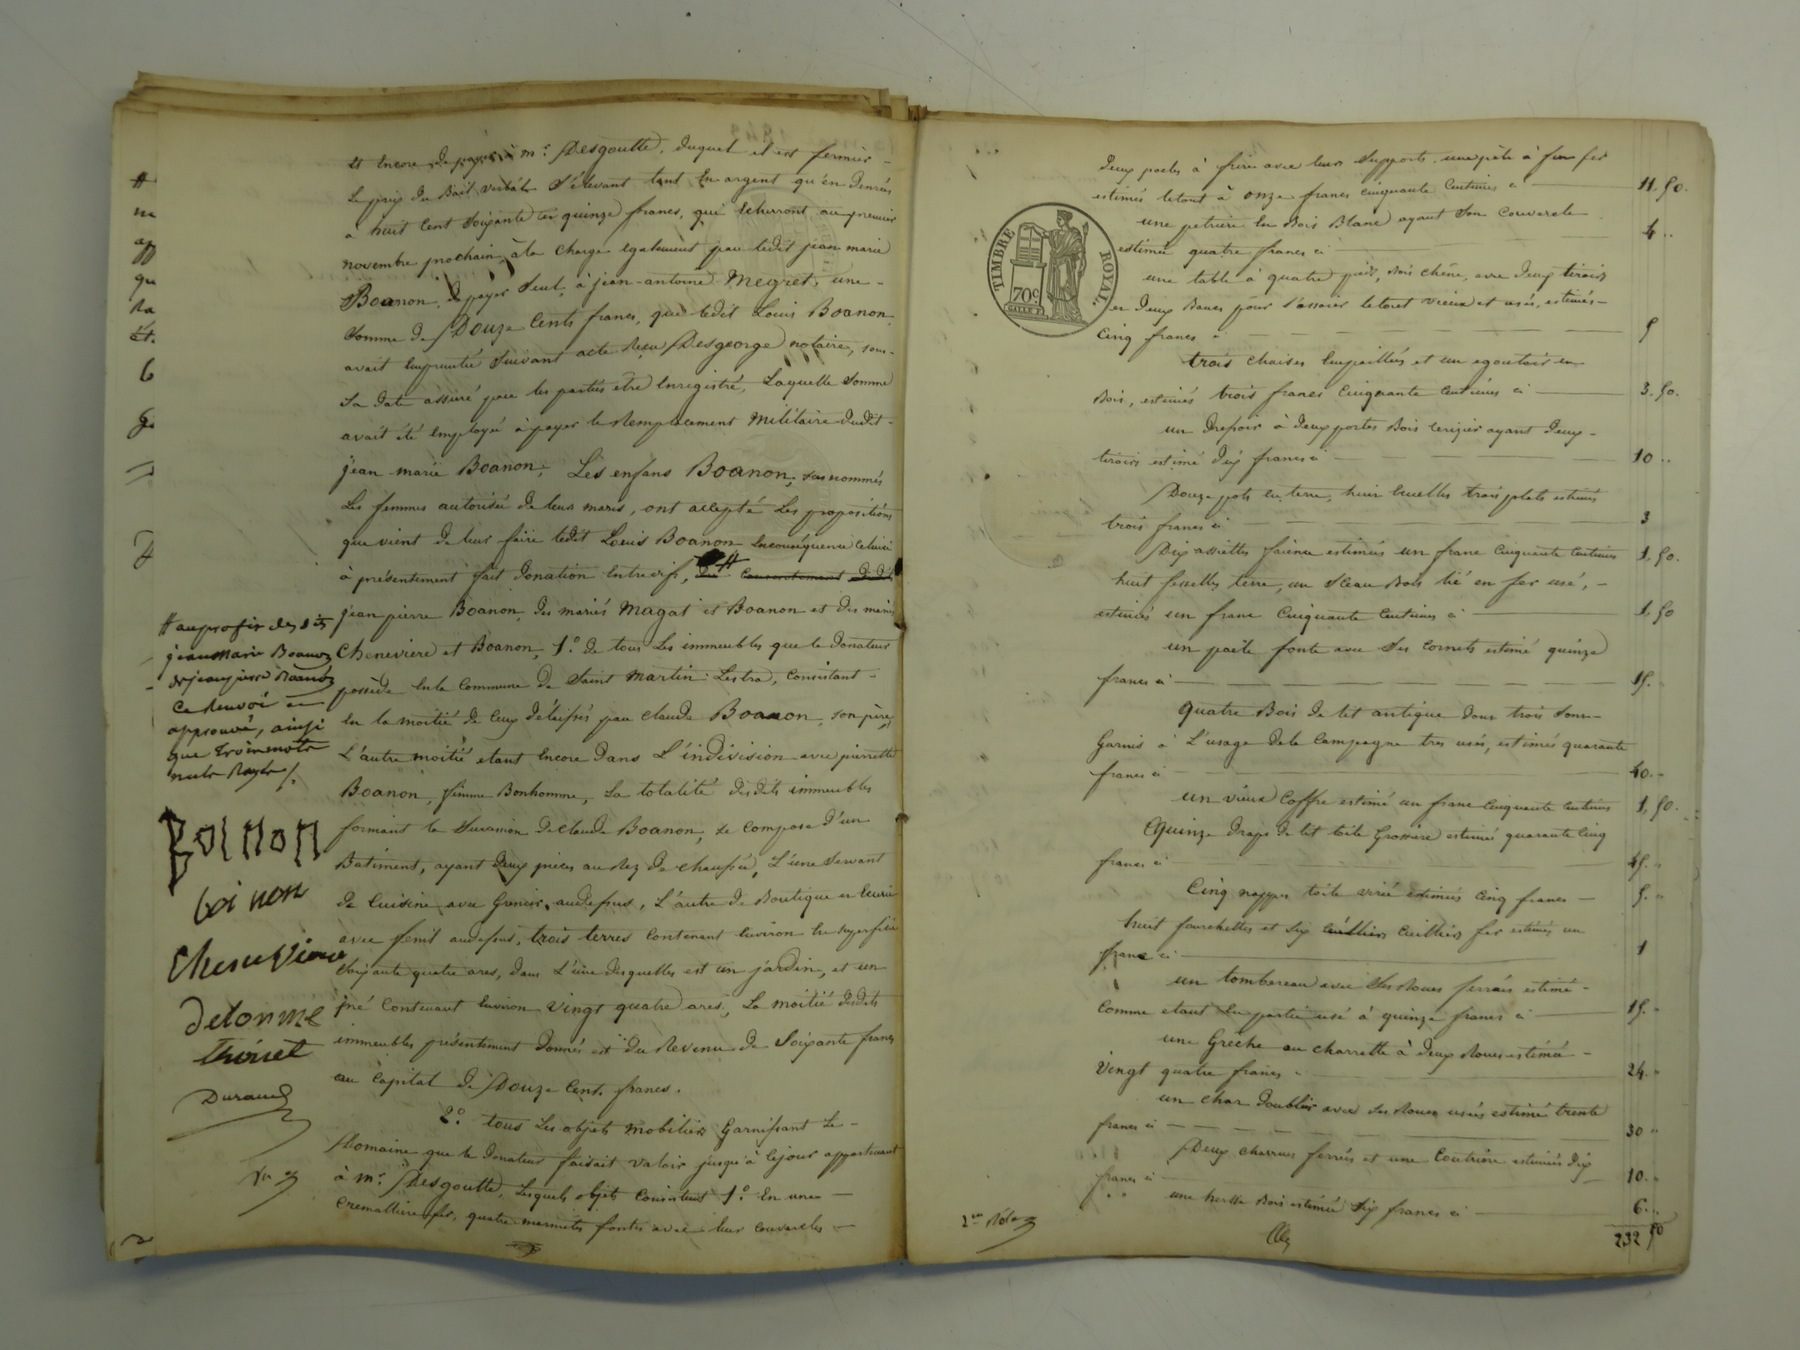 et encore de payer à mr. Desgoutte, duquel il est fermier
Le prix du Bail verbal s'élevant tant en argent qu'en denrées
à huit cent soixante et quinze francs, qui écherront au premier
novembre prochain, à la charge également par ledit jean marie
Boanon, de payer seul, à jean-antoine Megret, une
somme de Douze Cents francs, que ledit Louis Boanon
avait empruntée suivant acte reçu Desgeorge notaire, sous
sa date assuré par les parties être enregistré, Laquelle somme
avait été employé à payer le remplacement Militaire dudit
jean marie Boanon. Les enfans Boanon, sus nommés
Les femmes autorisée de leurs maris, ont accepté Les propositions
que vient de leur faire ledit Louis Boanon Enconséquence celui ci
à présentement fait donation entrevifs, #
jean pierre Boanon, des mariés Magat et Boanon et des mariés
Cheneviere et Boanon, 1.° de tous Les immeubles que le donateur
possède en la Commune de Saint Martin Lestra, Consistant
En la moitié de ceux délaissés par claude Boanon, son père,
L'autre moitié étant encore dans L'indivision avec pierrette
Boanon, femme Bonhomme, La totalité desdits immeubles
formant la succession de claude Boanon, se compose d'un
Batiment, ayant deux pièces au Rez de chaussée, L'une servant
de Cuisine avec Grenier audessus, L'autre de Boutique et Ecurie
avec fenil audessus, trois terres Contenant environ en superficie
soixante quatre ares, dans L'une desquelles est un jardin, et un
pré Contenant environ vingt quatre ares, La moitié desdits
immeubles présentement donnés est du Revenu de Soixante francs
au Capital de Douze Cents francs.
2.° tous Les objets mobiliers Garnissant Le
Domaine que le donateur faisait valoir jusqu'à cejour appartenant
à mr. Desgoutte, Lesquels objets Consistent 1.° En une
cremalliere fer, quatre marmites fontes avec leur couvercles
# au profit des dits
jean Marie Boanon
et jean pierre Boanon
Ce Renvoi
approuvé, ainsi
que trois mots
nuls Rayés /.
BOINON
boi non
Chenevière
delorme
thoinet
Durand
deux poeles à frire avec leurs supports, une pèle à feu fer
estimés letout à onze francs cinquante Centimes ci 11, 50.
une petriere en Bois Blanc ayant Son Couvercle
estimée quatre francs ci 4 ..
une table à quatre pieds, Bois chêne, avec deux tiroirs
et deux Bancs pour s'asseoir letout vieux et usés, estimés
Cinq francs ci 5
trois chaises Empaillées et un egoutoir en
Bois, estimés trois francs Cinquante Centimes ci 3. 50.
un drepoir à deux portes Bois Cerizier ayant deux
tiroirs estimé dix francs ci 10 ..
Douze pots en terre, huit ecuelles trois plats estimés
trois francs ci 3
Dix assiettes faience estimées un franc Cinquante Centimes 1, 50.
huit terre, un Sceau Bois lié en fer usé,
estimés un franc Cinquante Centimes ci 1, 50
un poële fonte avec Ses cornets estimé quinze
francs ci 15. ..
quatre Bois de lit antique dont trois sont
Garnis à L'usage dela Campagne tres usés, estimés quarante
francs ci 40. ..
un vieux Coffre estimé un franc Cinquante Centimes 1, 50.
Quinze draps de lit toile Grossière estimés quarante Cinq
francs ci 45. ..
Cinq nappes toile estimées Cinq francs 5. ..
huit fourchettes et six cuilliers fer estimés un
franc ci 1
un tombereau avec Ses Roues ferrées estimé
Comme etant En partie usé à quinze francs ci 15. ..
une Greche ou charrette à deux Roues estimée
vingt quatre francs 24. ..
un char doublier avec Ses Roues usées estimé trente
francs ci 30 ..
Deux charrues ferrées et une estimées dix
francs ci 10. ..
une herse Bois estimée Six francs ci 6. ..
232 50
2me Rôle
TIMBRE ROYAL.
70c